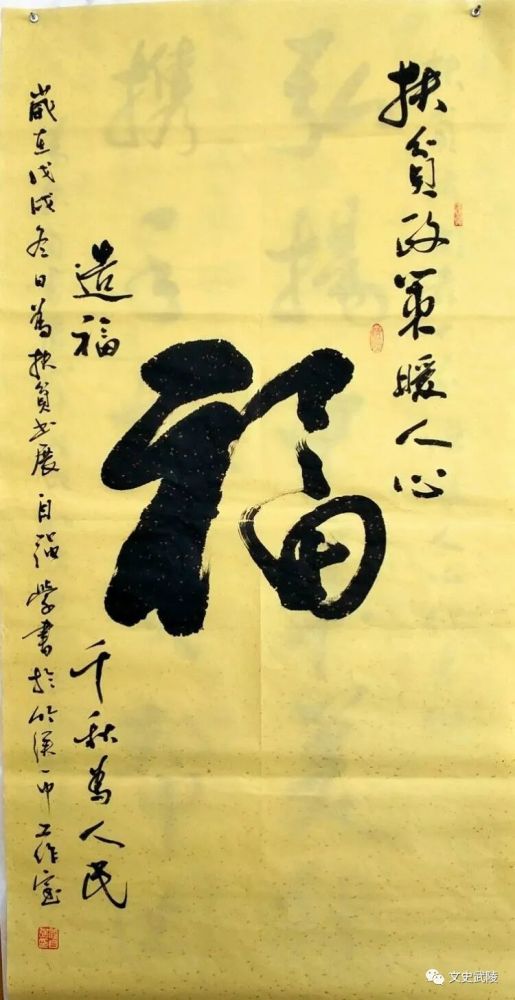 扶貧政策暖人心
福
造福
千秋為人民
歲在戊戌冬日為扶貧书展 自強學書於 工作室
文史武陵